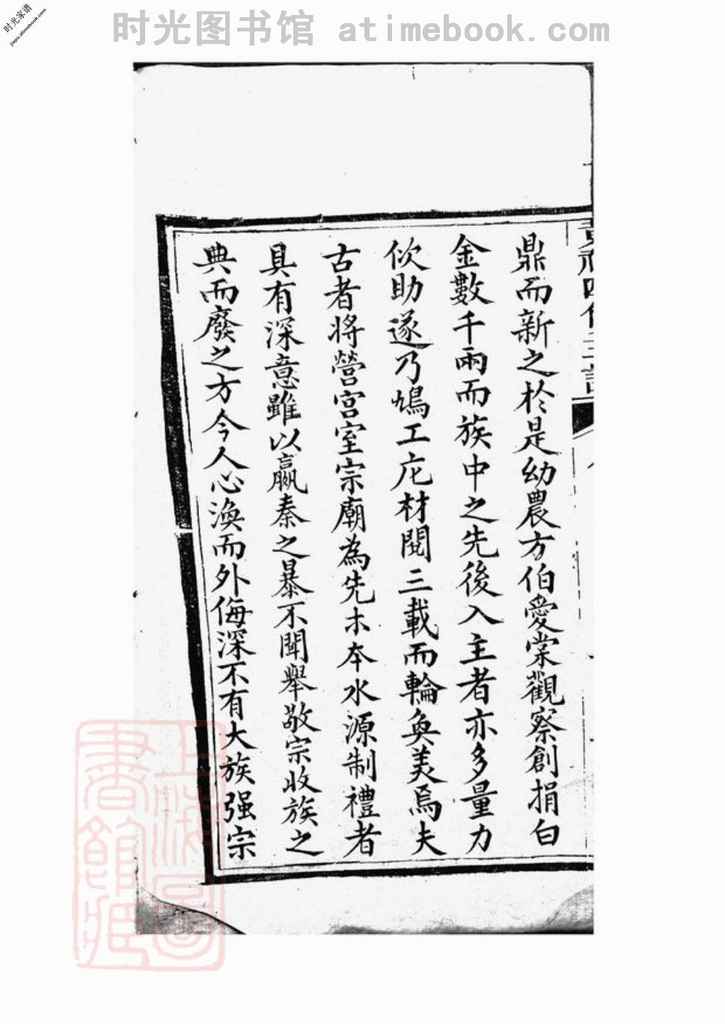 时光图书馆 atimebook.com
时光家谱
鼎而新之於是幼農方伯愛棠觀察創捐白
金數千兩而族中之先後入主者亦多量力
佽助遂乃鳩工庀材閱三載而輪奐美焉夫
古者將營宮室宗廟為先木本水源制禮者
具有深意雖以嬴秦之暴不聞舉敬宗收族之
典而廢之方今人心渙而外侮深不有大族强宗
上海圖書館藏